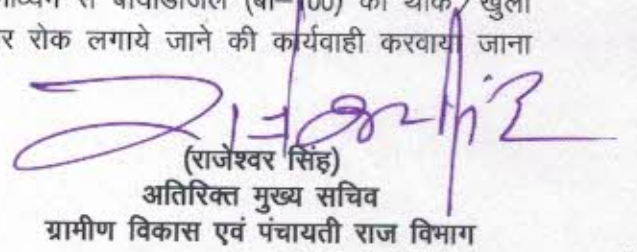 से बायोडीजल (बी-100) की थोक/खुली
र रोक लगाये जाने की कार्यवाही करवाया जाना
(राजेश्वर सिंह)
अतिरिक्त मुख्य सचिव
ग्रामीण विकास एवं पंचायती राज विभाग